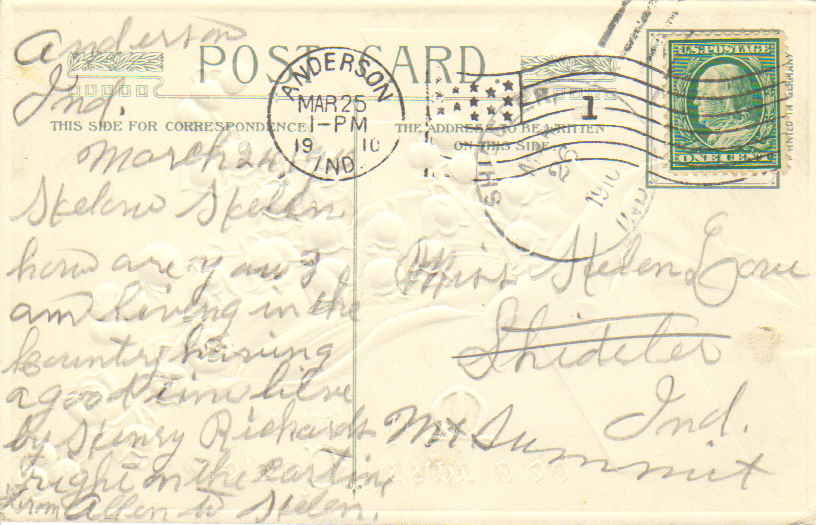 POST CARD
THIS SIDE FOR CORRESPONDENCE
THE ADDRESS TO BE WRITTEN
ON THIS SIDE
ANDERSON
MAR 25
1-PM
19 10
IND.
1
1910
U.S. POSTAGE
ONE CENT
Anderson
Ind.
March 24
Helen
how are you I
am living in the
kountry having
a good time live
by Henry Richards
right on the
from Allen to Helen.
Miss Helen Love
Shideler
Ind.
Mt Summit